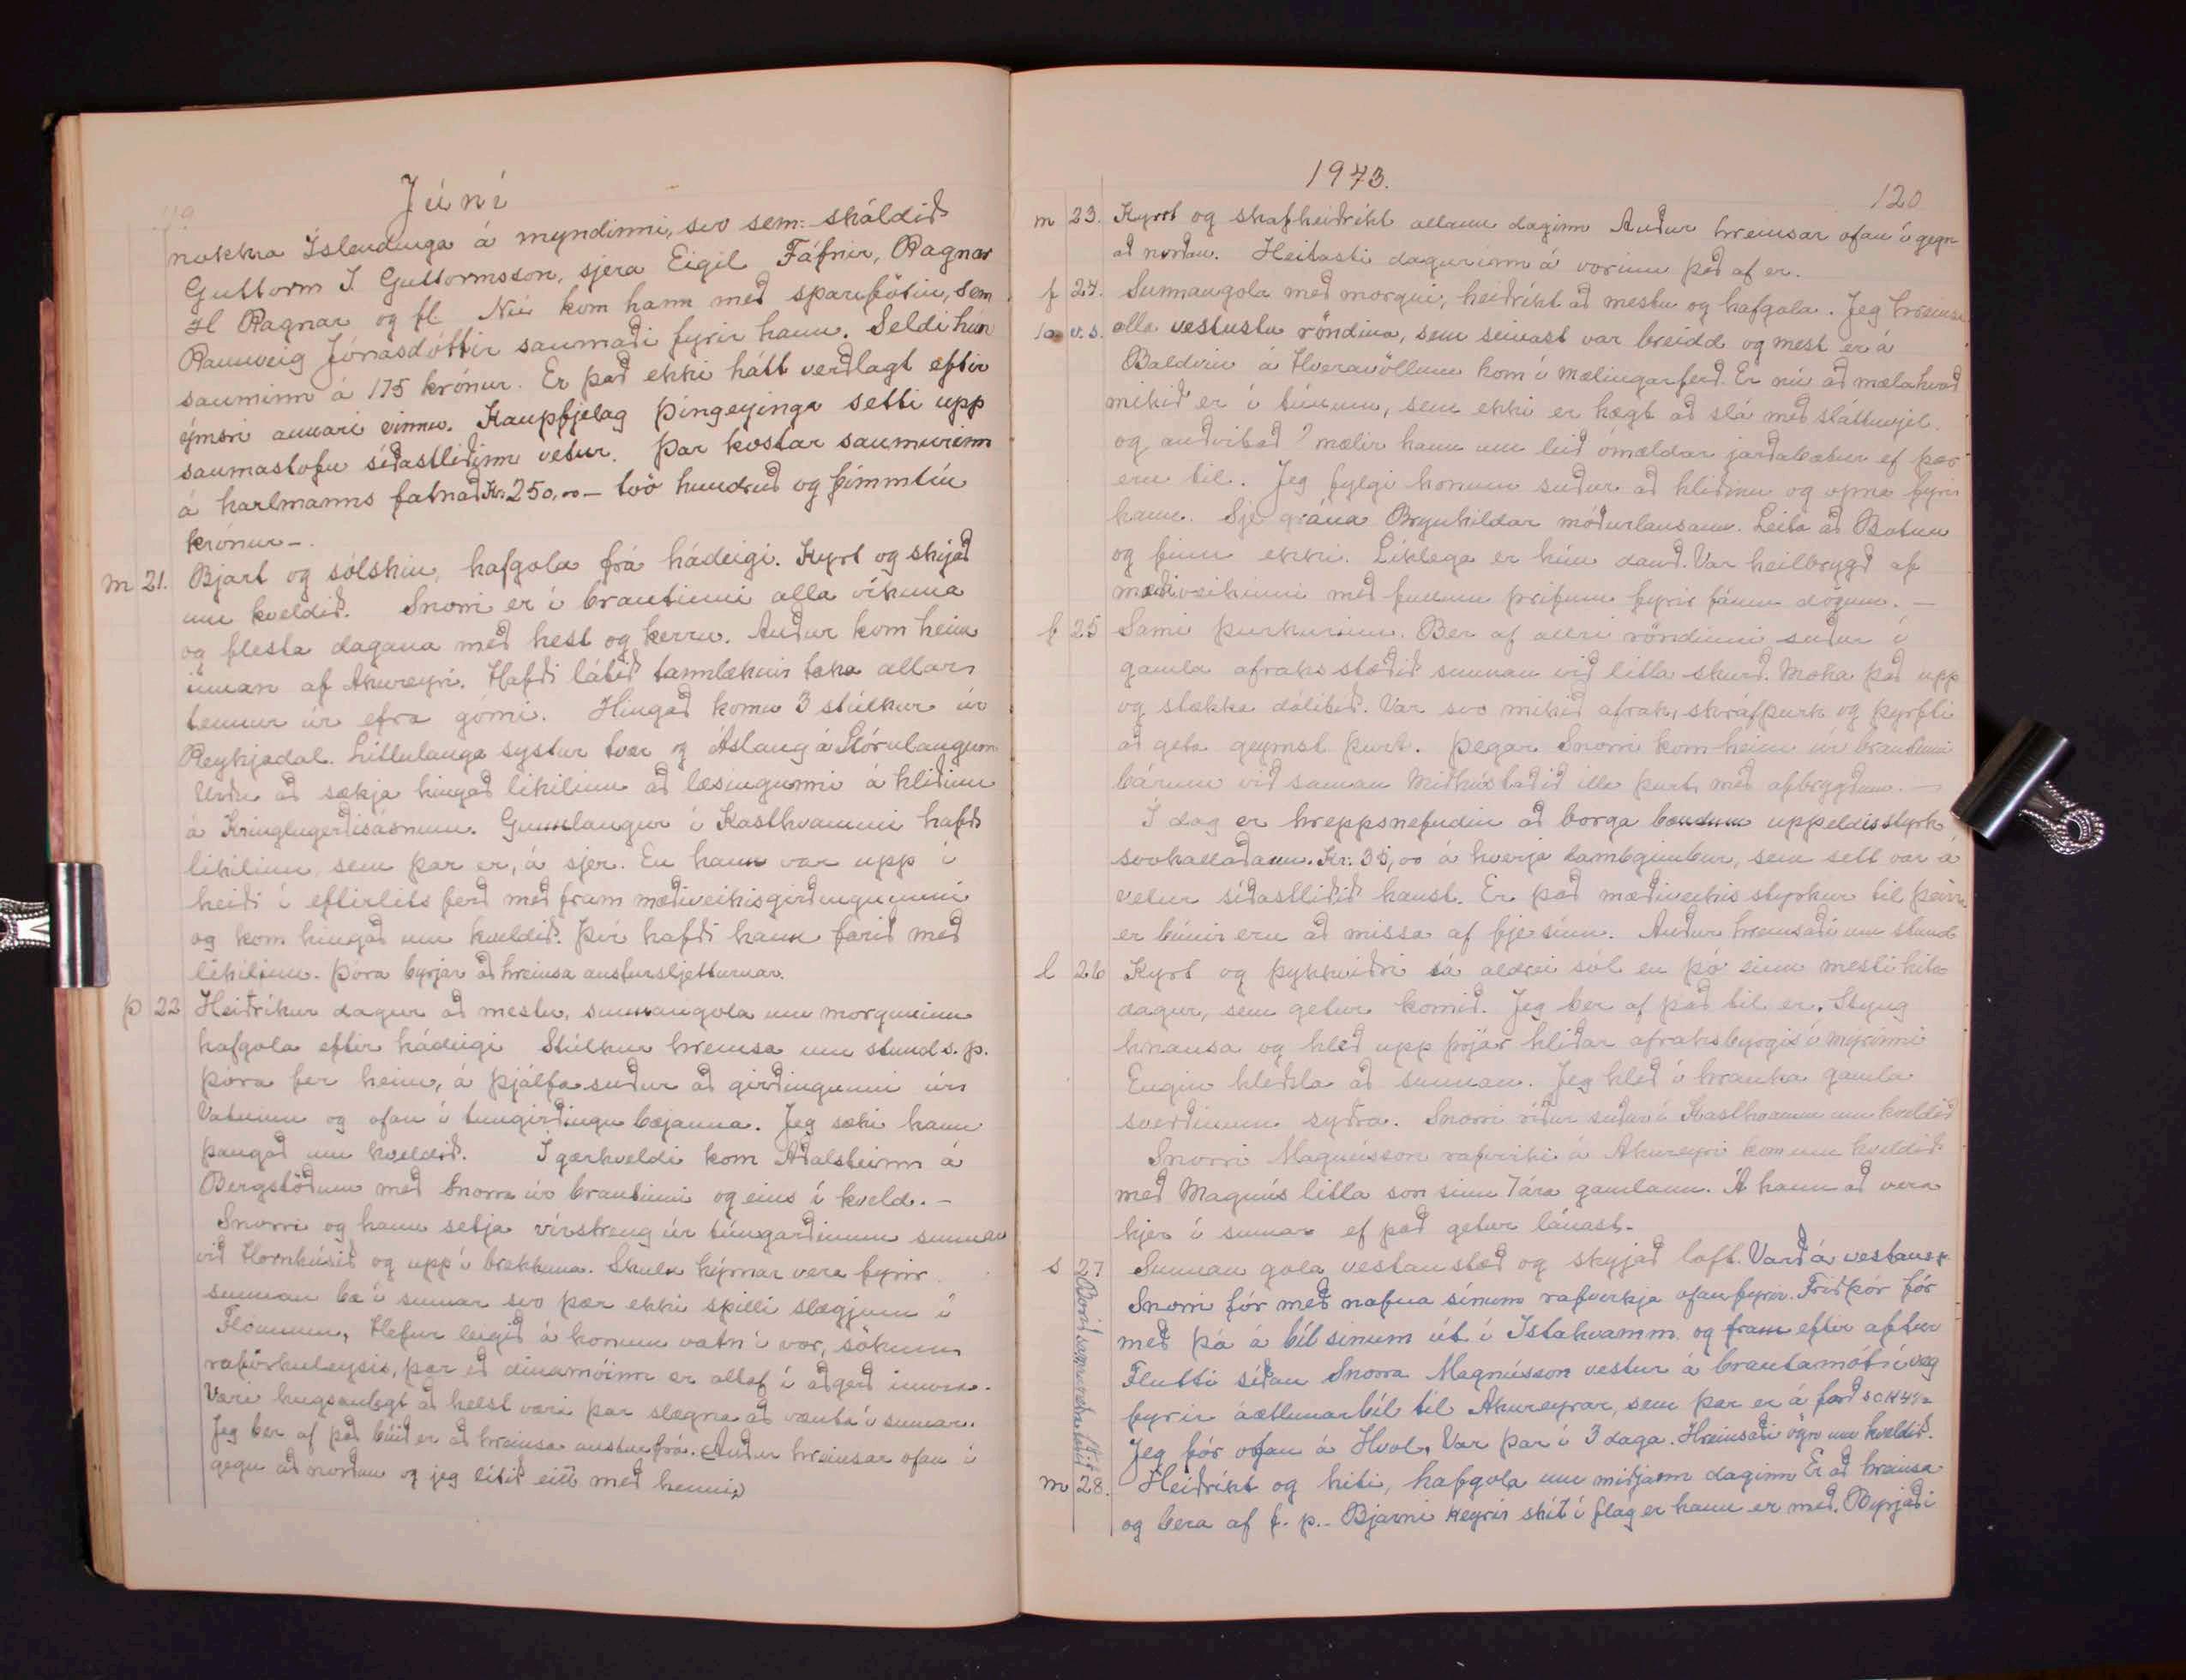 119
Júní
nokkra Íslendinga á myndinni, svo sem: skáldið
Guttorm J. Guttormsson, sjera Eigil Fáfnir, Ragnar
H Ragnar og fl. Nú kom hann með sparifötin, sem
Rannveig Jónasdóttir saumaði fyrir hann. Seldi hún
sauminn á 175 krónur. Er það ekki hátt verðlagt eftir
ýmsri annari vinnu. Kaupfjelag Þingeyinga setti upp
saumastofu síðastliðinn vetur. Þar kostar saumurinn
á karlmanns fatnað Kr. 250,oo - tvö hundruð og fimmtíu
krónur -.
m 21. Bjart og sólskin, hafgola frá hádeigi. Kyrt og skjað
um kveldið. Snorri er í brautinni alla vikuna
og flesta dagana með hest og kerru. Auður kom heim
innan af Akureyri. Hafði látið tannlæknir taka allar
tennur úr efra gómi. Hingað komu 3 stúlkur úr
Reykjadal. Litlulauga systur tvær og Áslaug á Stórulaugum
Urðu að sækja hingað likilinn að læsingunni á hliðinu
á Kringlugerðisásnum. Gunnlaugur í Kasthvammi hafði
likilinn, sem þar er, á sjer. En hann var upp í
heiði í eftirlits ferð með fram mæðiveikisgirðingunni
og kom hingað um kveldið. Því hafði hann farið með
likilinn. Þóra byrjar að hreinsa austursljetturnar.
þ 22 Heiðríkur dagur að mestu, sunnangola um morguninn
hafgola eftir hádeigi Stúlkur hreinsa um stund s. p.
Þóra fer heim, á Þjálfa suður að girðingunni úr
Vatninu og ofan í tungirðingu bæjanna. Jeg sæki hann
þangað um kveldið. Í gærkveldi kom Aðalsteinn á
Bergstöðum með Snorra úr brautinni og eins í kveld. -
Snorri og hann setja vírstreng úr túngarðinum sunnan
við Hornhúsið og upp í brekkuna. Skulu kýrnar vera fyrir
sunnan bæ í sumar svo þær ekki spilli slægjum í
Flóanum, Hefur leigið á honum vatn í vor, sökum
raforkuleysis, þar eð dinamóinn er alltaf í aðgerð
Væri hugsanlegt að helst væri þar slægna að vænta í sumar.
Jeg ber af það búið er að hreinsa austurfrá. Auður hreinsar ofan í
gegn að norðan og jeg lítið eitt með henni
1943.
120
m 23. Kyrrt og skafheiðríkt allann daginn Auður hreinsar ofan í gegn
að norðan. Heitasti dagurinn á vorinu það af er.
f 24. Sunnangola með morgni, heiðríkt að mestu og hafgola. Jeg hreinsa
alla vestustu röndina, sem seinast var breidd og mest er á
Baldvin á Hveravöllum kom í mælingarferð. Er nú að mæla hvað
mikið er í túnum, sem ekki er hægt að slá með sláttuvjel.
og auðvitað? mælir hann um leið ómældar jarðabætur ef þær
eru til. Jeg fylgi honum suður að hliðinu og opna fyrir
hann. Sje grána Brynhildar móðurlausann. Leita að Botnu
og finn ekki. Líklega er hún dauð. Var heilbrygð af
mæðiveikinni með fullum þrifum fyrir fáum dögum. -
f 25 Sami þurkurinn. Ber af allri röndinni suður í
gamla afraks stæðið sunnan við litla skurð. Moka það upp
og stækka dálítið. Var svo mikið afrak, skráfþurk og þyrfti
að geta geymst þurt. Þegar Snorri kom heim úr brautinni
bárum við saman Miðhústaðið illa þurt, með afbrygðum. -
Í dag er hreppsnefndin að borga bændum uppeldisstyrk
svokallaðann. Kr: 35,oo á hverja lambgimbur, sem sett var á
vetur síðastliðið haust. Er það mæðiveikis styrkur til þeirra
er búnir eru að missa af fje sínu. Auður hreinsaði um stund
l 26 Kyrt og þykkviðri sá aldrei sól en þó einn mesti hita
dagur, sem getur komið. Jeg ber af það til er. Styng
hnausa og hleð upp þrjár hliðar afraksbyrgis í mýrinni
Engin hleðsla að sunnan. Jeg hleð í hrauka gamla
sverðinum syðra. Snorri ríður suður í Kasthvamm um kveldið
Snorri Magnússon rafvirki á Akureyri kom um kveldið
með Magnús litla son sinn 7 ára gamlann. Á hann að vera
hjer í sumar ef það getur lánast.
s 27 Sunnan gola vestan stæð og skyjað loft. Varð á vestan s k
Snorri fór með nafna sínum rafverkja ofanfyrir. Friðþór fór
með þá á bíl sínum út í Ystahvamm og fram eftir aftur
Flutti síðan Snorra Magnússon vestur á brautamót í veg
fyrir áætlunarbíl til Akureyrar, sem þar er á ferð
Jeg fór ofan á Hvol. Var þar í 3 daga. Hreinsaði ögn um kveldið.
m 28. Heiðríkt og hiti, hafgola um miðjann daginn Er að hreinsa
og bera af f. p. - Bjarni keyrir skít í flag er hann er með. Byrjaði